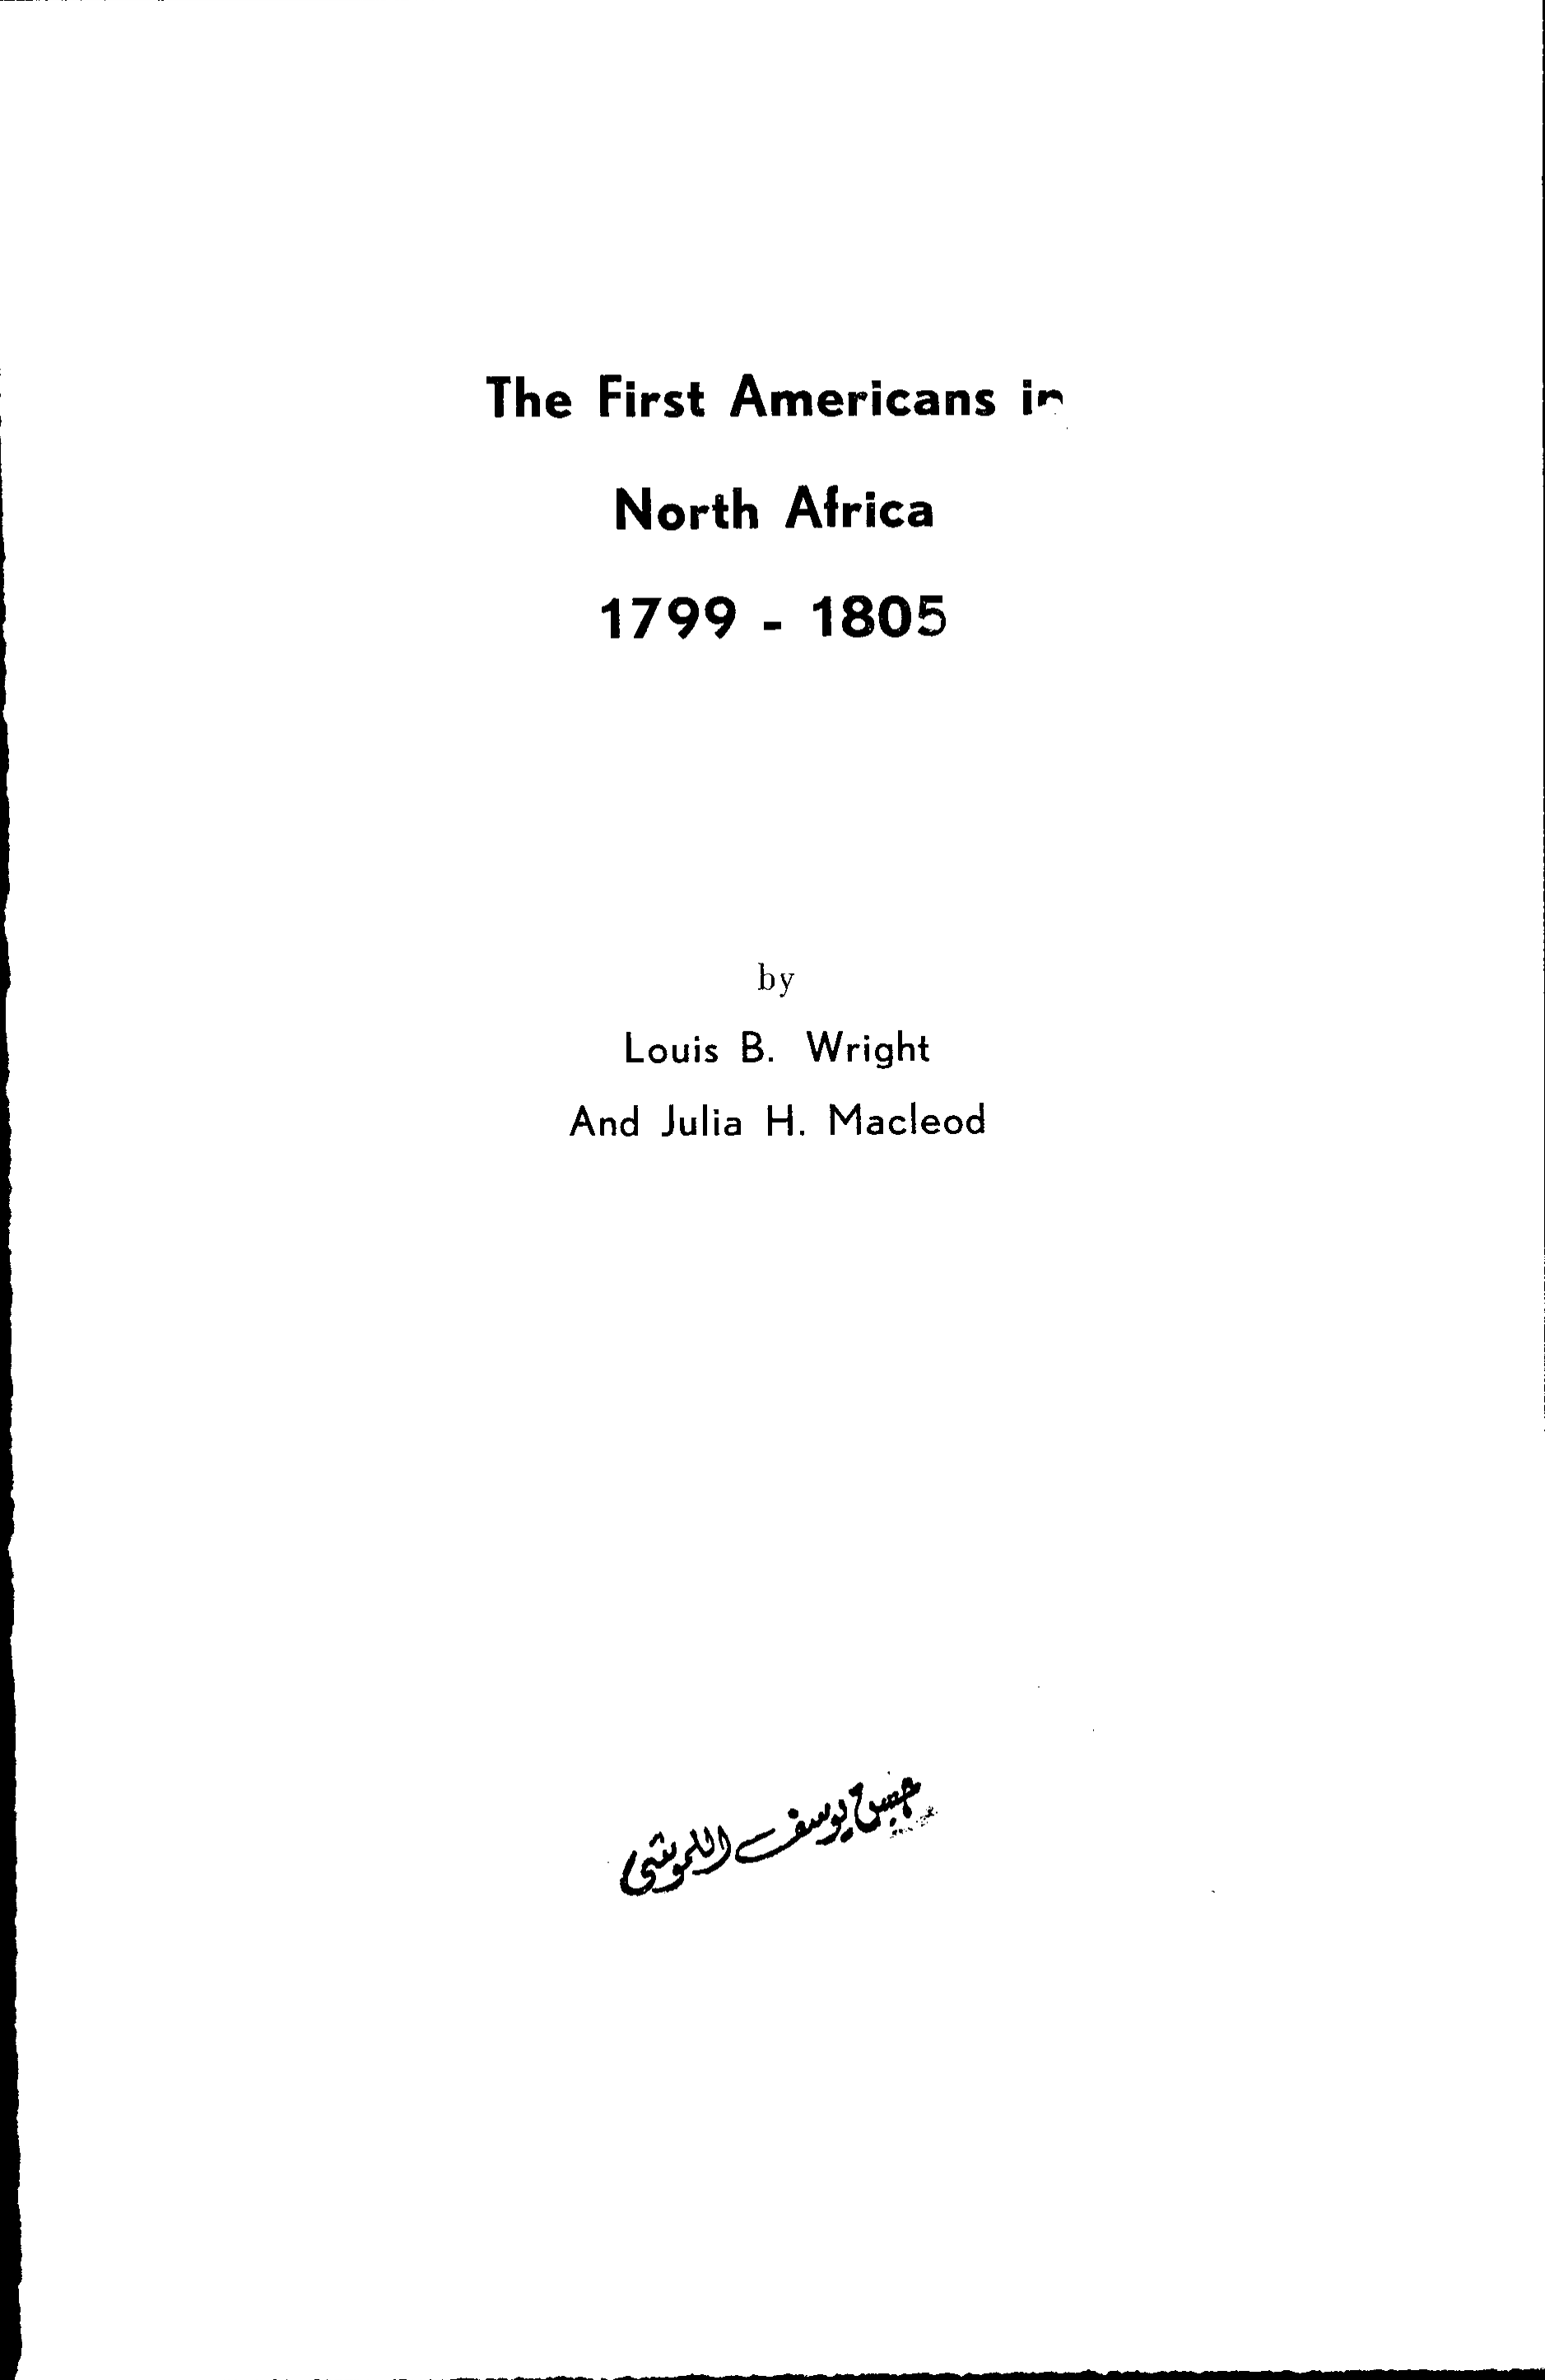 The First Americans in
North Africa
1799 - 1805
by
Louis B. Wright
And Julia H. Macleod
حسن يوسف اللموشي